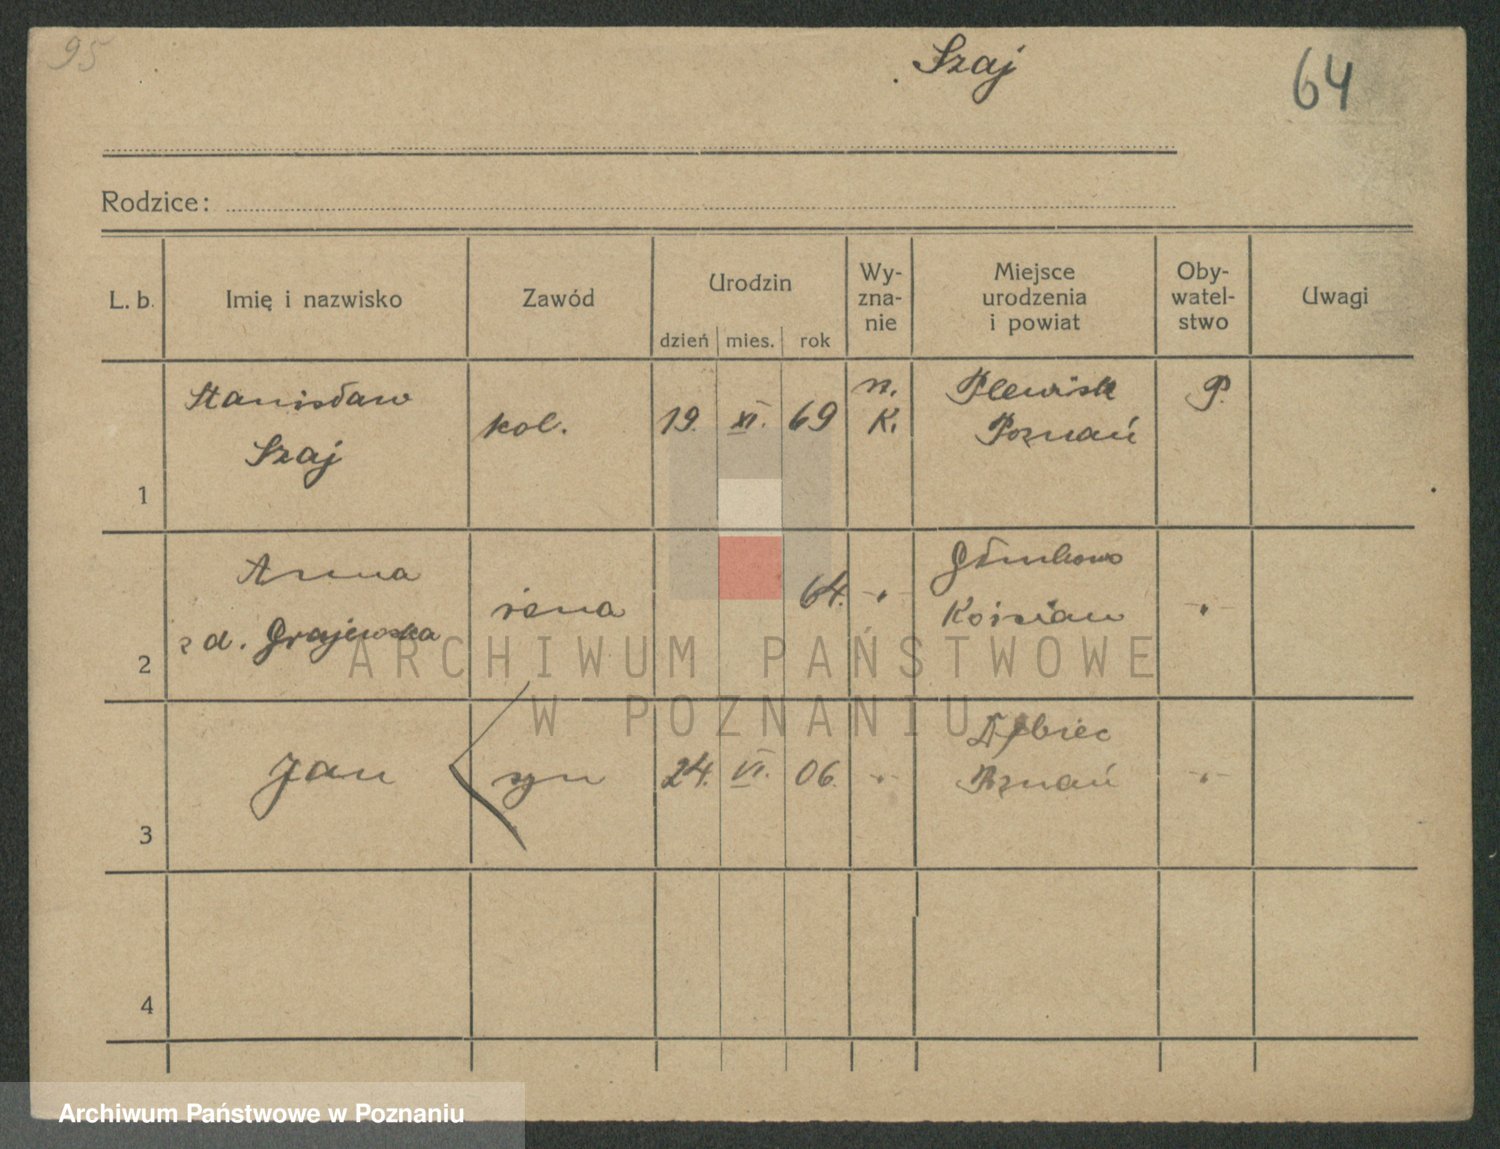 95
Szaj
64
Rodzice:
L. b. Imię i nazwisko Zawód Urodzin dzień mies. rok Wy-zna-nie Miejsce urodzenia i powiat Oby-watel-stwo Uwagi
Stanisław
Szaj
1
kol.
19. XI. 69
n.
K.
Plewisk
Poznań
P.
Anna
z d. Grajewska
2
żena
64.
-"-
Kościan
-"-
Jan
3
syn
24. VI. 06.
-"-
Dębiec
Poznań
-"-
4
ARCHIWUM PAŃSTWOWE
W POZNANIU
Archiwum Państwowe w Poznaniu